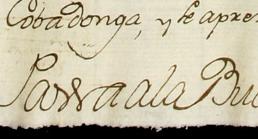 Cobadonga, y se apre
Parraala Bu